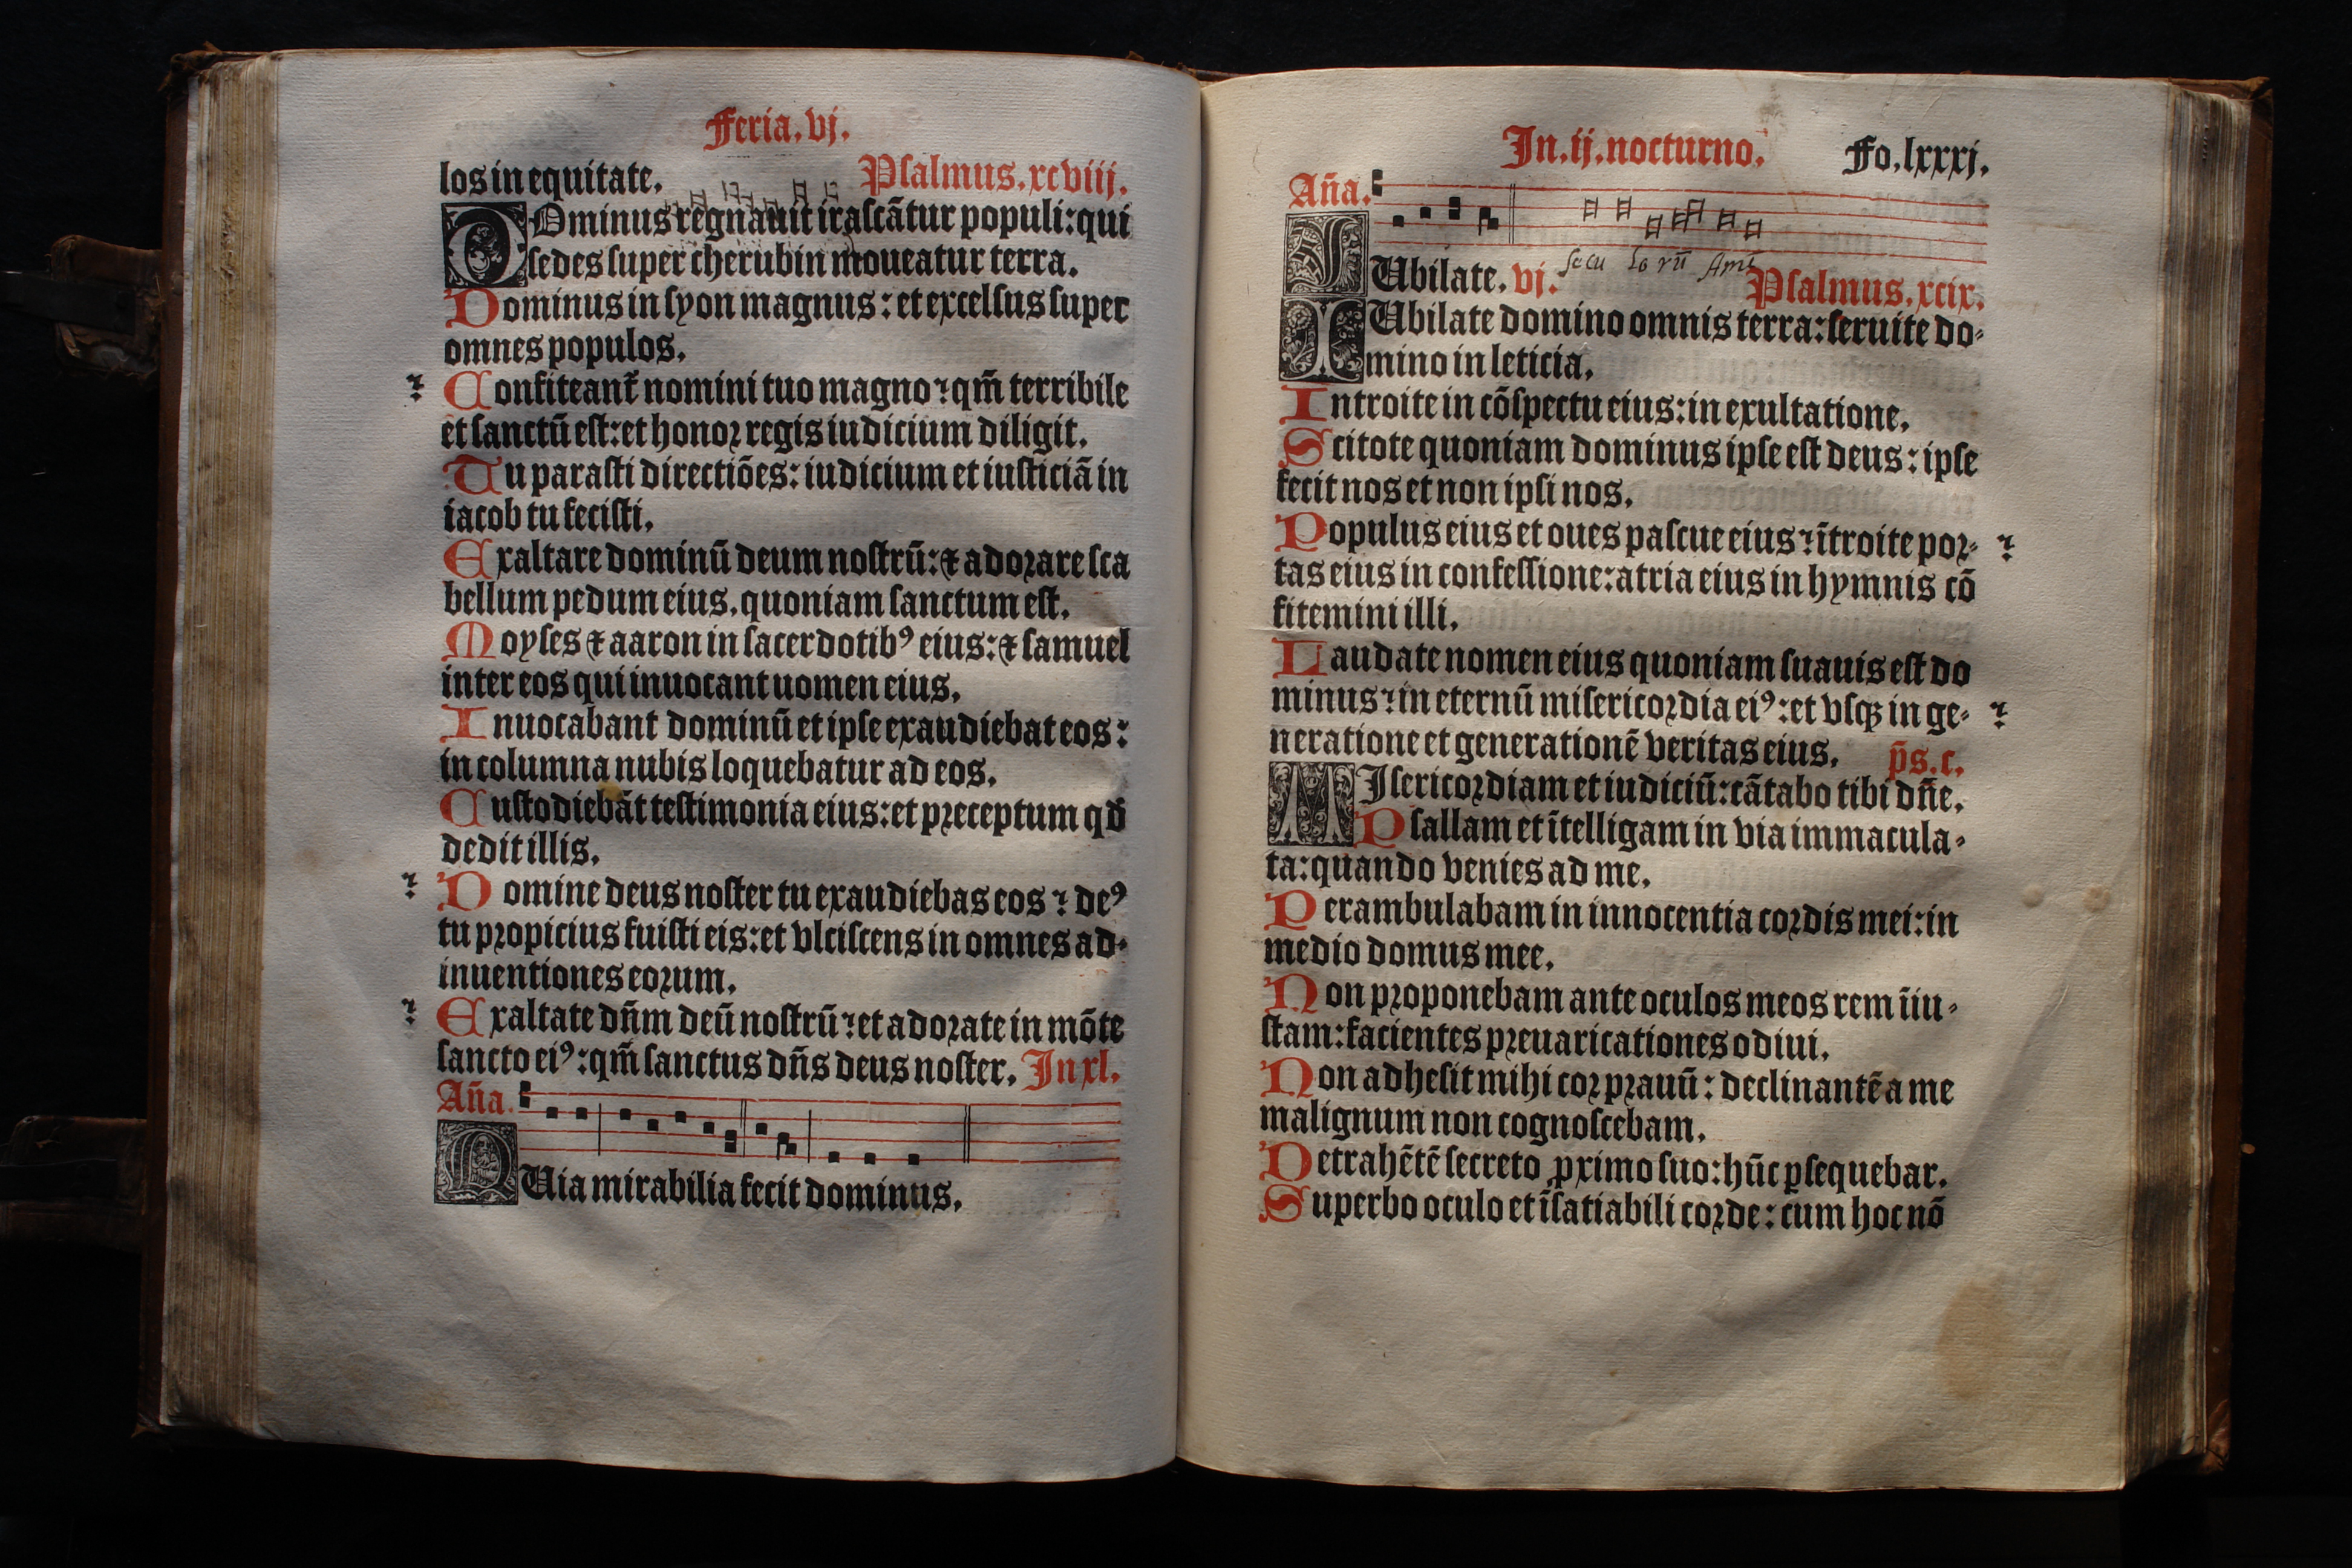 Feria.vj.
los in equitate. Psalmus.xcviij.
DOminus regnauit irascãtur populi: qui
sedes super cherubin moueatur terra.
Dominus in syon magnus: et excelsus super
omnes populos.
Confiteant᷑ nomini tuo magno ⁊ qm̃ terribile
et sanctũ est: et honoꝛ regis iudicium diligit.
Tu parasti directiões: iudicium et iusticiã in
iacob tu fecisti.
Exaltare dominũ deum nostrũ: ⁊ adoꝛare sca
bellum pedum eius. quoniam sanctum est.
Moyses ⁊ aaron in sacerdotibꝰ eius: ⁊ samuel
inter eos qui inuocant uomen eius.
Inuocabant dominũ et ipse exaudiebat eos:
in columna nubis loquebatur ad eos.
Custodiebãt testimonia eius: et pꝛeceptum qd̃
dedit illis.
Domine deus noster tu exaudiebas eos ⁊ deꝰ
tu pꝛopicius fuisti eis: et vlciscens in omnes ad-
inuentiones eoꝛum.
Exaltate dñm deũ nostrũ ⁊ et adoꝛate in mõte
sancto eiꝰ: qm̃ sanctus dñs deus noster. In xl.
Aña.
QUia mirabilia fecit dominus.
In.ij.nocturno. Fo.lxxxj.
Aña.
IUbilate. vj. secu lo rũ Amẽ Psalmus.xcix.
IUbilate domino omnis terra: seruite do-
mino in leticia.
Introite in cõspectu eius: in exultatione.
Scitote quoniam dominus ipse est deus: ipse
fecit nos et non ipsi nos.
Populus eius et oues pascue eius ⁊ ĩtroite poꝛ-
tas eius in confessione: atria eius in hymnis cõ
fitemini illi.
Laudate nomen eius quoniam suauis est do
minus ⁊ in eternũ misericoꝛdia eiꝰ: et vsqꝫ in ge-
neratione et generationẽ veritas eius. p̃s.c.
MIsericoꝛdiam et iudiciũ: cãtabo tibi dñe.
Psallam et ĩtelligam in via immacula-
ta: quando venies ad me.
Perambulabam in innocentia coꝛdis mei: in
medio domus mee.
Non pꝛoponebam ante oculos meos rem ĩiu-
stam: facientes pꝛeuaricationes odiui.
Non adhesit mihi coꝛ pꝛauũ: declinantẽ a me
malignum non cognoscebam.
Detrahẽtẽ secreto ꝓximo suo: hũc ꝑsequebar.
Superbo oculo et ĩsatiabili coꝛde: cum hoc nõ